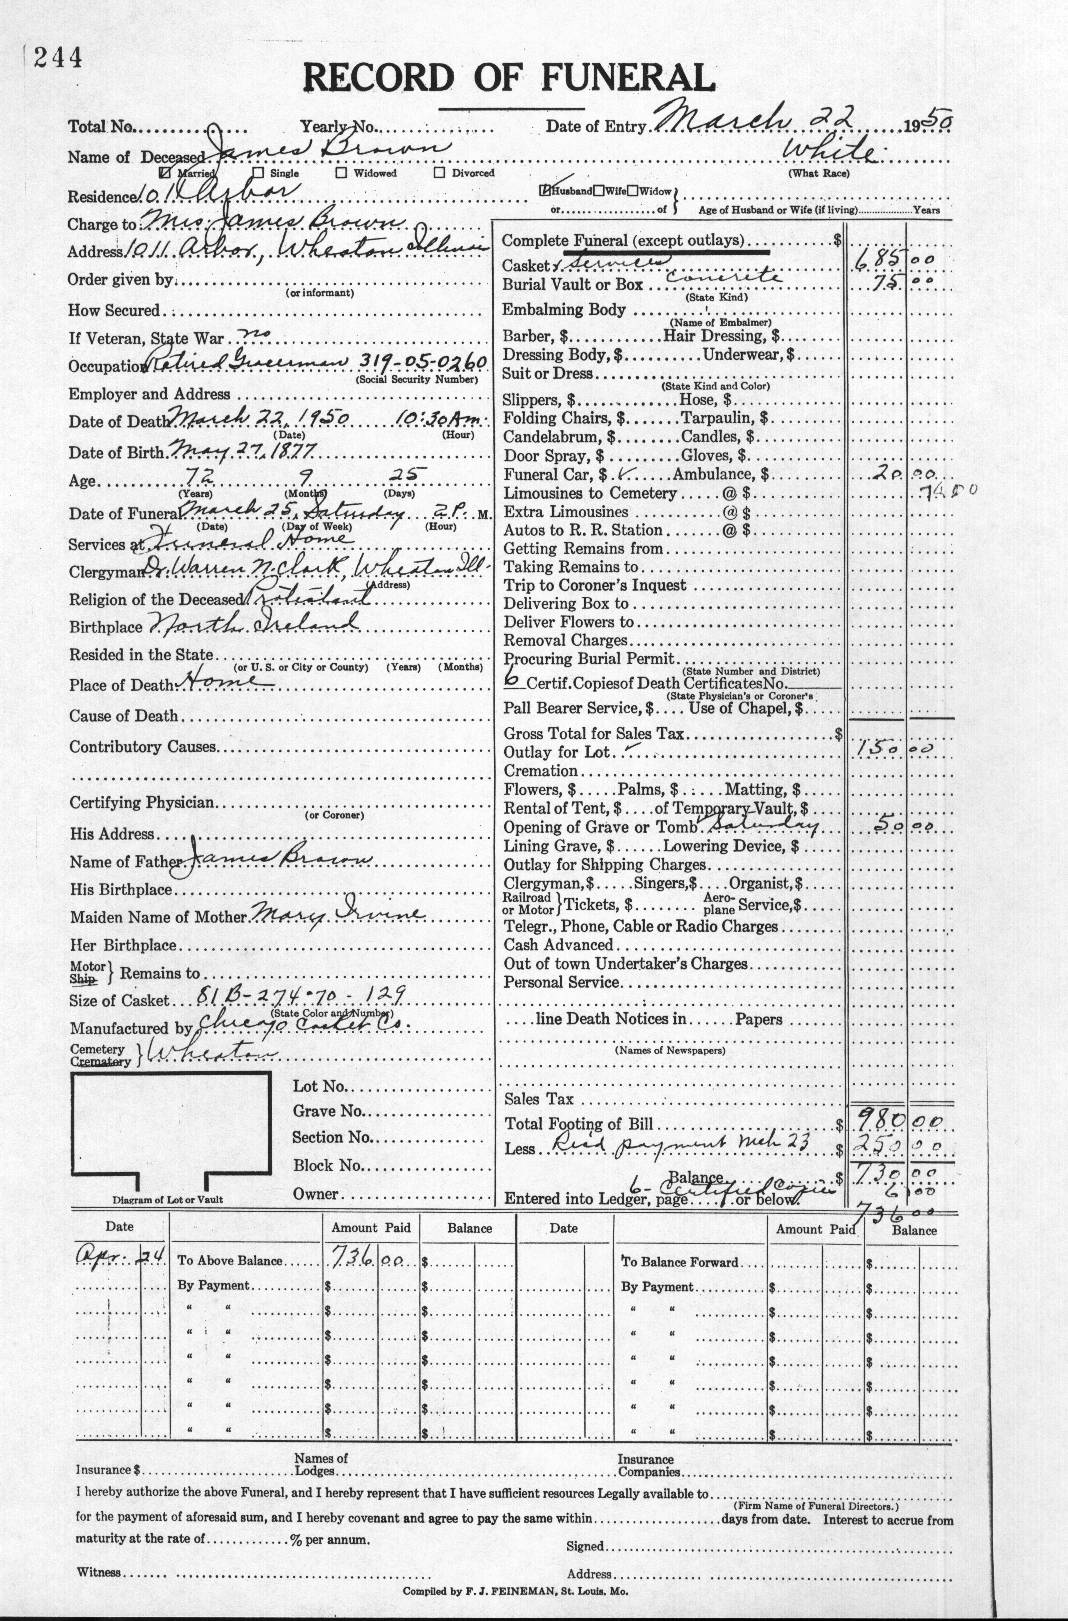 244
RECORD OF FUNERAL
Total No. Yearly No. Date of Entry March 22 1950
Name of Deceased James Brown White
Married Single Widowed Divorced (What Race)
Residence 1011 Arbor Husband Wife Widow
or of Age of Husband or Wife (if living) Years
Charge to Mrs. James Brown
Address 1011 Arbor, Wheaton Illinois
Order given by
(or informant)
How Secured
If Veteran, State War no
Occupation Retired Groceryman 319-05-0260
(Social Security Number)
Employer and Address
Date of Death March 22, 1950 10:30 Am.
(Date) (Hour)
Date of Birth May 27, 1877
Age 72 9 25
(Years) (Months) (Days)
Date of Funeral March 25, Saturday 2 P. M.
(Date) (Day of Week) (Hour)
Services at Funeral Home
Clergyman Dr. Warren N. Clark, Wheaton Ill.
(Address)
Religion of the Deceased Protestant
Birthplace North Ireland
Resided in the State
(or U. S. or City or County) (Years) (Months)
Place of Death Home
Cause of Death
Contributory Causes
Certifying Physician
(or Coroner)
His Address
Name of Father James Brown
His Birthplace
Maiden Name of Mother Mary Irvine
Her Birthplace
Motor
Ship } Remains to
Size of Casket 81B-274-70-129
(State Color and Number)
Manufactured by Chicago Casket Co.
Cemetery
Crematory } Wheaton
Lot No.
Grave No.
Section No.
Block No.
Owner
Diagram of Lot or Vault
Complete Funeral (except outlays) $
Casket & Services 685 00
Burial Vault or Box concrete 75 00
(State Kind)
Embalming Body
(Name of Embalmer)
Barber, $ Hair Dressing, $
Dressing Body, $ Underwear, $
Suit or Dress
(State Kind and Color)
Slippers, $ Hose, $
Folding Chairs, $ Tarpaulin, $
Candelabrum, $ Candles, $
Door Spray, $ Gloves, $
Funeral Car, $ ✓ Ambulance, $ 20 00
Limousines to Cemetery @ $
Extra Limousines @ $
Autos to R. R. Station @ $
Getting Remains from
Taking Remains to
Trip to Coroner's Inquest
Delivering Box to
Deliver Flowers to
Removal Charges
Procuring Burial Permit
(State Number and District)
6 Certif. Copies of Death Certificates No.
(State Physician's or Coroner's
Pall Bearer Service, $ Use of Chapel, $
Gross Total for Sales Tax $
Outlay for Lot ✓ 150 00
Cremation
Flowers, $ Palms, $ Matting, $
Rental of Tent, $ of Temporary Vault, $
Opening of Grave or Tomb Saturday 50 00
Lining Grave, $ Lowering Device, $
Outlay for Shipping Charges
Clergyman, $ Singers, $ Organist, $
Railroad or Motor } Tickets, $ Aeroplane Service, $
Telegr., Phone, Cable or Radio Charges
Cash Advanced
Out of town Undertaker's Charges
Personal Service
line Death Notices in Papers
(Names of Newspapers)
Sales Tax
Total Footing of Bill $ 980 00
Less Rec'd payment Mch 23 $ 250 00
Balance $ 730 00
6 - Certified Copies 6 00
Entered into Ledger, page or below. 736 00
Date Amount Paid Balance Date Amount Paid Balance
Apr. 24 To Above Balance 736 00 $ To Balance Forward $
By Payment $ $ By Payment $ $
" " $ $ " " $ $
" " $ $ " " $ $
" " $ $ " " $ $
" " $ $ " " $ $
" " $ $ " " $ $
" " $ $ " " $ $
Insurance $ Names of Lodges Insurance Companies
I hereby authorize the above Funeral, and I hereby represent that I have sufficient resources Legally available to
(Firm Name of Funeral Directors.)
for the payment of aforesaid sum, and I hereby covenant and agree to pay the same within days from date. Interest to accrue from
maturity at the rate of % per annum.
Signed
Witness Address
Compiled by F. J. FEINEMAN, St. Louis, Mo.